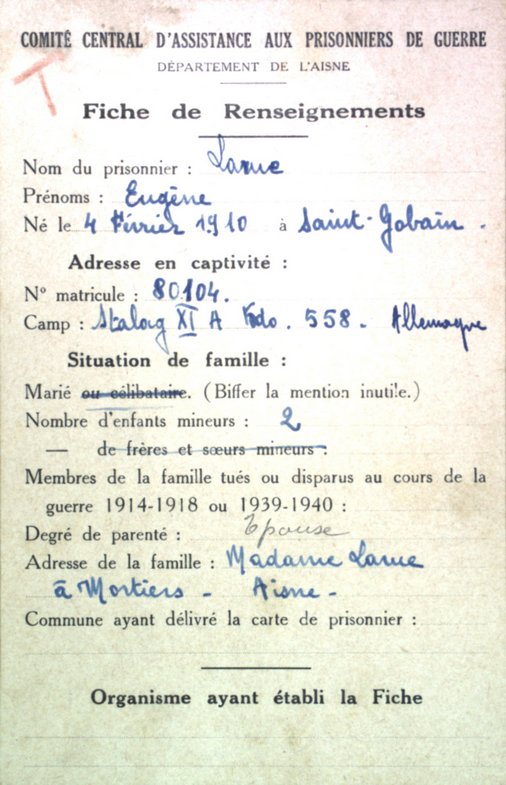 COMITÉ CENTRAL D'ASSISTANCE AUX PRISONNIERS DE GUERRE
DÉPARTEMENT DE L'AISNE
T
Fiche de Renseignements
Nom du prisonnier : Larue
Prénoms : Eugène
Né le 4 Février 1910 à Saint-Gobain.
Adresse en captivité :
N° matricule : 80104.
Camp : Stalag XI A Kdo. 558. Allemagne
Situation de famille :
Marié ou célibataire. (Biffer la mention inutile.)
Nombre d'enfants mineurs : 2
— de frères et sœurs mineurs :
Membres de la famille tués ou disparus au cours de la
guerre 1914-1918 ou 1939-1940 :
Degré de parenté : Epouse
Adresse de la famille : Madame Larue
à Mortiers - Aisne -
Commune ayant délivré la carte de prisonnier :
Organisme ayant établi la Fiche